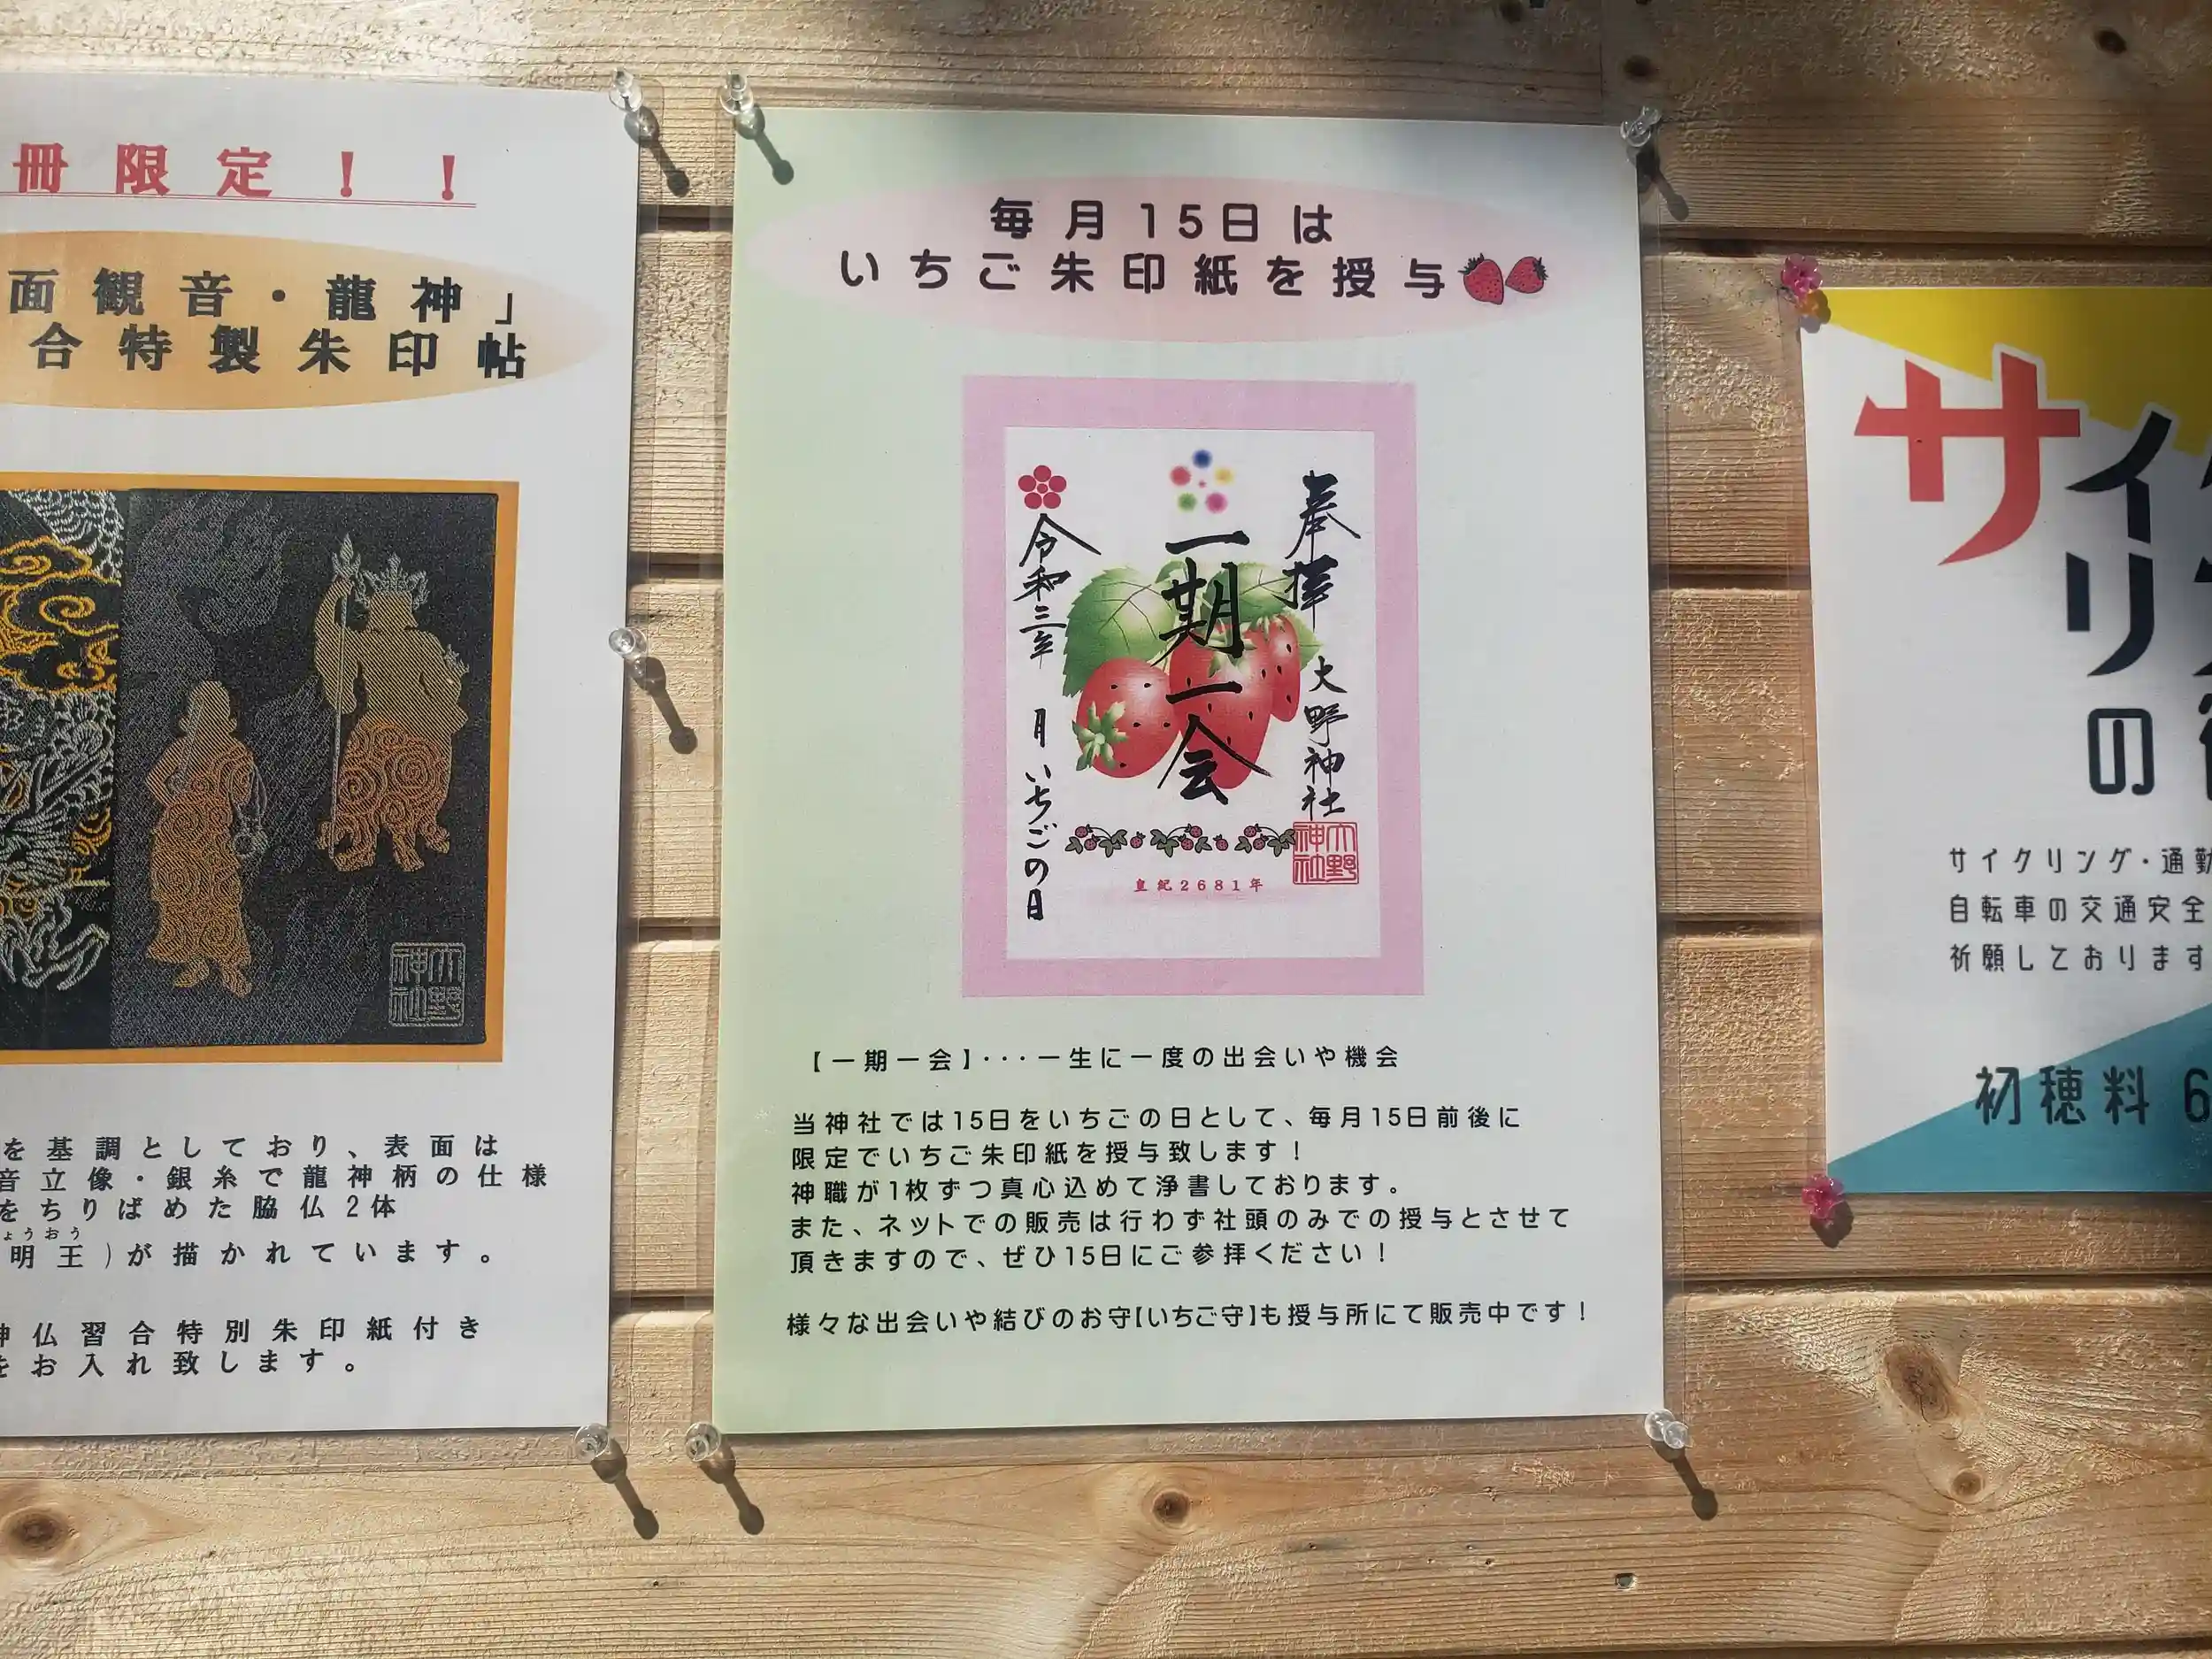 冊限定！！
面観音・龍神」
合特製朱印帖
大野
神社
を基調としており、表面は
音立像・銀糸で龍神柄の仕様
をちりばめた脇仏2体
ょうおう
明王)が描かれています。
仏習合特別朱印紙付き
をお入れ致します。
毎月15日は
いちご朱印紙を授与
奉拝 大野神社
一期一会
令和三年 月 いちごの日
大野
神社
皇紀2681年
【一期一会】・・・一生に一度の出会いや機会
当神社では15日をいちごの日として、毎月15日前後に
限定でいちご朱印紙を授与致します！
神職が1枚ずつ真心込めて浄書しております。
また、ネットでの販売は行わず社頭のみでの授与とさせて
頂きますので、ぜひ15日にご参拝ください！
様々な出会いや結びのお守【いちご守】も授与所にて販売中です！
サイ
リ
の
サイクリング・通勤
自転車の交通安全
祈願しております
初穂料 6